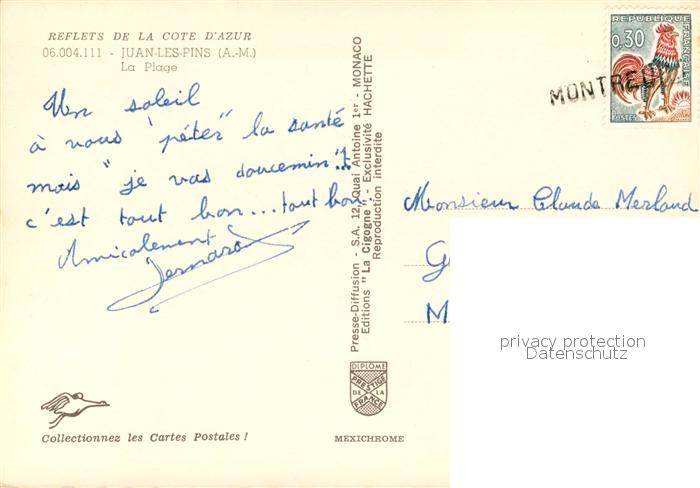 REFLETS DE LA COTE D'AZUR
06.004.111 - JUAN-LES-PINS (A.-M.)
La Plage
Un soleil
à vous "péter" la santé
mais "je vas doucemin"!
c'est tout bon... tout bon.
Amicalement
Presse-Diffusion - S.A. 12, Quai Antoine 1er - MONACO
Editions "La Cigogne" - Exclusivité HACHETTE
Reproduction interdite
REPUBLIQUE
FRANÇAISE
0,30
POSTES
MONTREUIL
Monsieur Claude Merland
G
M
privacy protection
Datenschutz
DIPLOME
PRESTIGE
DE LA
FRANCE
Collectionnez les Cartes Postales !
MEXICHROME